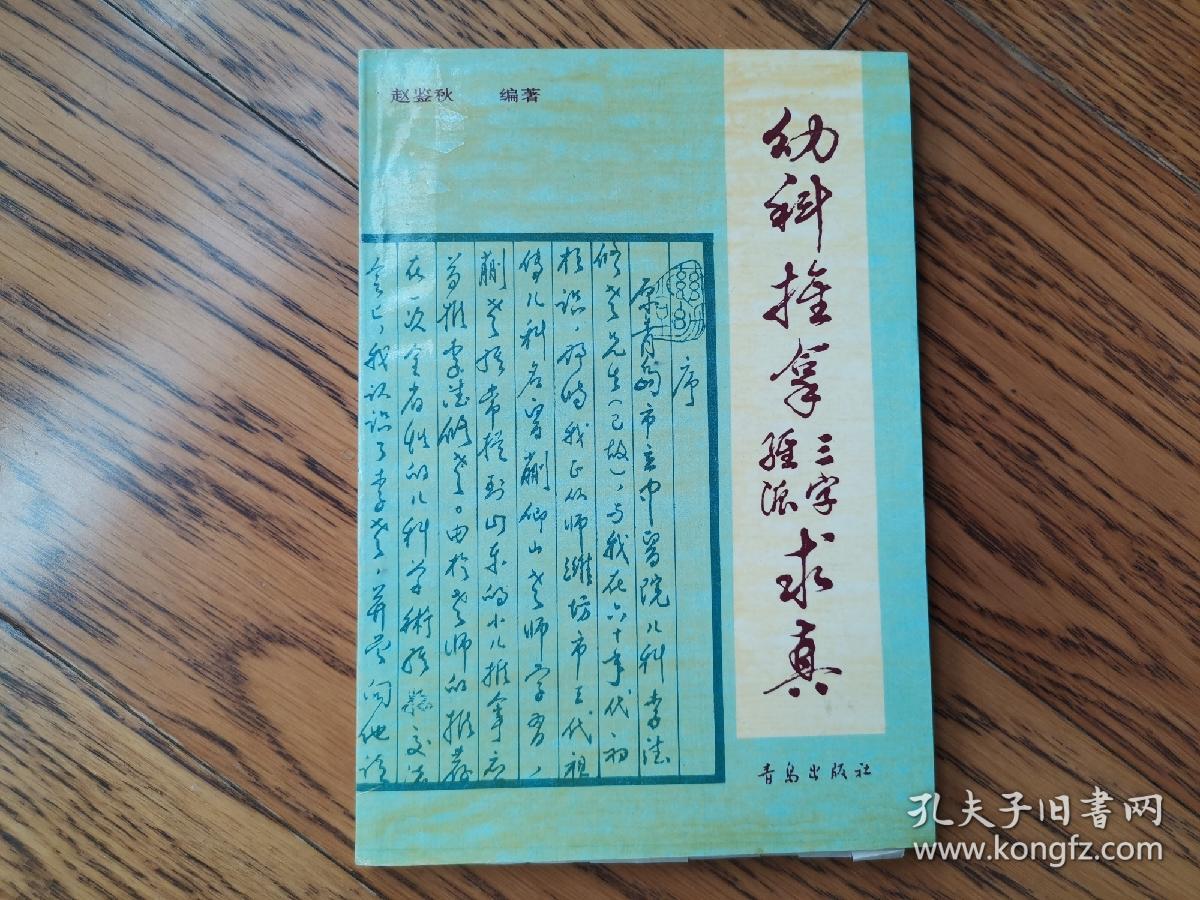 赵鉴秋 编著
幼科推拿
三字
经派
求真
序
原青岛市立中医院儿科李德
修老先生（已故），与我在六十年代初
相识，那时我正从师潍坊市三代祖
传儿科名医蒯仰山老师学习，
蒯老经常提到山东的小儿推拿应
首推李德修老。由於老师的推荐
在一次全省性的儿科学術经验交流
会上，我认识了李老，并登门
青岛出版社
孔夫子旧书网
www.kongfz.com